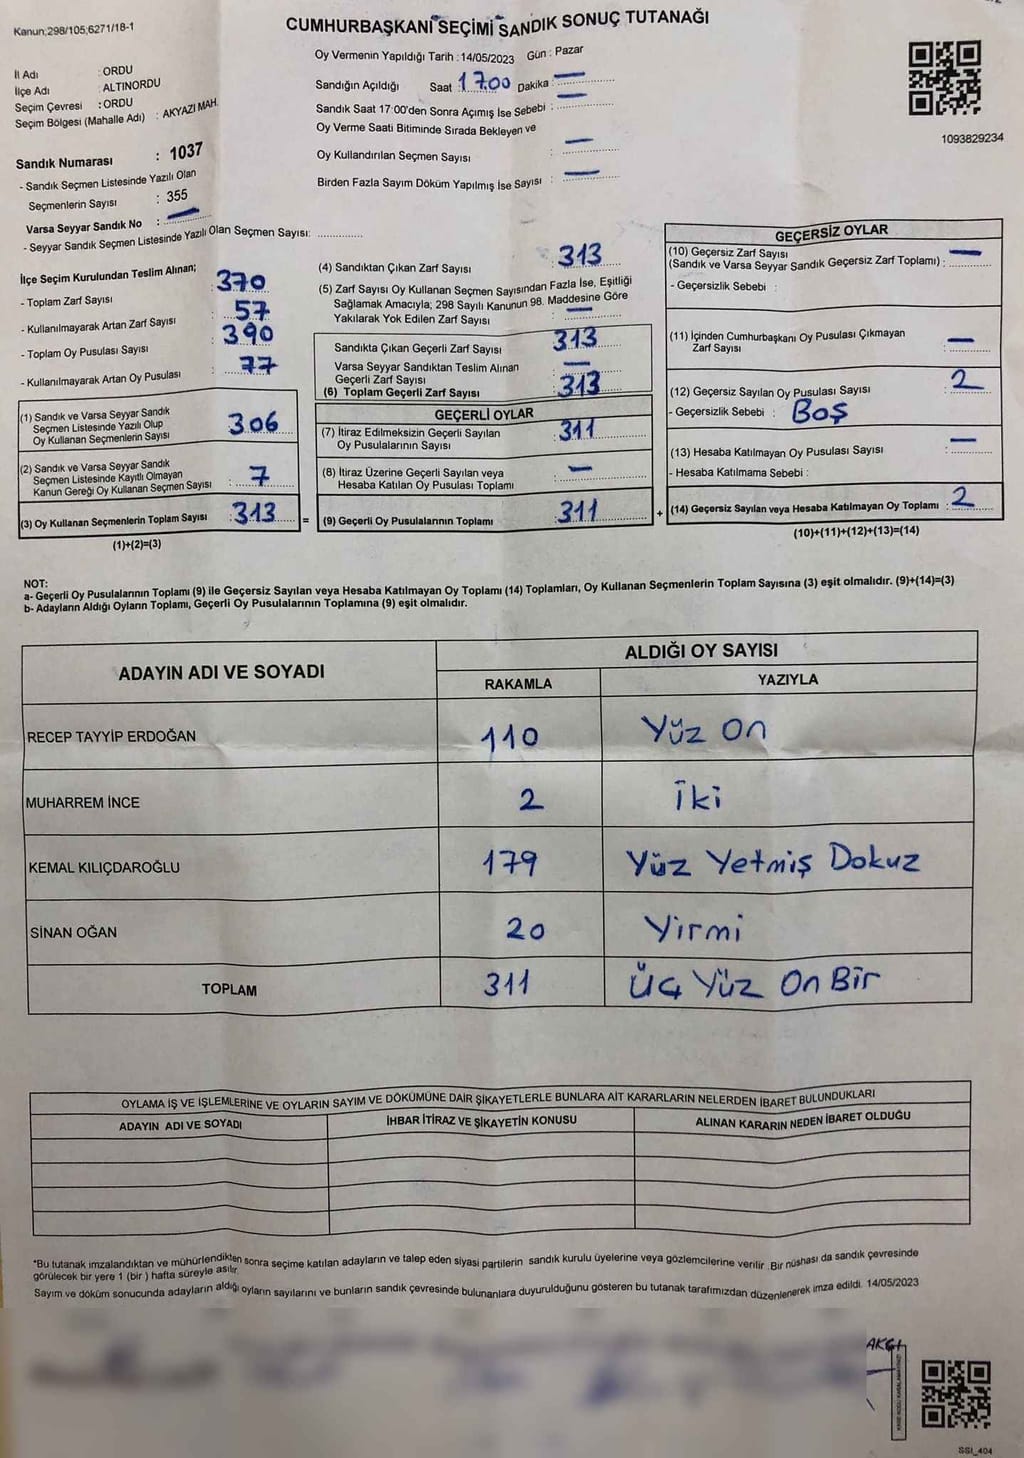 Kanun;298/105;6271/18-1
CUMHURBAŞKANI SEÇİMİ SANDIK SONUÇ TUTANAĞI
İl Adı : ORDU
İlçe Adı : ALTINORDU
Seçim Çevresi : ORDU
Seçim Bölgesi (Mahalle Adı) : AKYAZI MAH.
Sandık Numarası : 1037
- Sandık Seçmen Listesinde Yazılı Olan
Seçmenlerin Sayısı : 355
Varsa Seyyar Sandık No : —
- Seyyar Sandık Seçmen Listesinde Yazılı Olan Seçmen Sayısı: ..............
Oy Vermenin Yapıldığı Tarih : 14/05/2023 Gün : Pazar
Sandığın Açıldığı Saat 17.00 Dakika : —
Sandık Saat 17:00'den Sonra Açımış İse Sebebi : —
Oy Verme Saati Bitiminde Sırada Bekleyen ve
Oy Kullandırılan Seçmen Sayısı : —
Birden Fazla Sayım Döküm Yapılmış İse Sayısı : —
1093829234
İlçe Seçim Kurulundan Teslim Alınan;
- Toplam Zarf Sayısı : 370
- Kullanılmayarak Artan Zarf Sayısı : 57
- Toplam Oy Pusulası Sayısı : 390
- Kullanılmayarak Artan Oy Pusulası : 77
(1) Sandık ve Varsa Seyyar Sandık
Seçmen Listesinde Yazılı Olup
Oy Kullanan Seçmenlerin Sayısı : 306
(2) Sandık ve Varsa Seyyar Sandık
Seçmen Listesinde Kayıtlı Olmayan
Kanun Gereği Oy Kullanan Seçmen Sayısı : 7
(3) Oy Kullanan Seçmenlerin Toplam Sayısı : 313
(1)+(2)=(3)
(4) Sandıktan Çıkan Zarf Sayısı : 313
(5) Zarf Sayısı Oy Kullanan Seçmen Sayısından Fazla İse, Eşitliği
Sağlamak Amacıyla; 298 Sayılı Kanunun 98. Maddesine Göre
Yakılarak Yok Edilen Zarf Sayısı : —
Sandıkta Çıkan Geçerli Zarf Sayısı : 313
Varsa Seyyar Sandıktan Teslim Alınan
Geçerli Zarf Sayısı : —
(6) Toplam Geçerli Zarf Sayısı : 313
GEÇERLİ OYLAR
(7) İtiraz Edilmeksizin Geçerli Sayılan
Oy Pusulalarının Sayısı : 311
(8) İtiraz Üzerine Geçerli Sayılan veya
Hesaba Katılan Oy Pusulası Toplamı : —
= (9) Geçerli Oy Pusulalarının Toplamı : 311
GEÇERSİZ OYLAR
(10) Geçersiz Zarf Sayısı
(Sandık ve Varsa Seyyar Sandık Geçersiz Zarf Toplamı) : —
- Geçersizlik Sebebi :
(11) İçinden Cumhurbaşkanı Oy Pusulası Çıkmayan
Zarf Sayısı : —
(12) Geçersiz Sayılan Oy Pusulası Sayısı : 2
- Geçersizlik Sebebi : Boş
(13) Hesaba Katılmayan Oy Pusulası Sayısı : —
- Hesaba Katılmama Sebebi :
+ (14) Geçersiz Sayılan veya Hesaba Katılmayan Oy Toplamı : 2
(10)+(11)+(12)+(13)=(14)
NOT:
a- Geçerli Oy Pusulalarının Toplamı (9) ile Geçersiz Sayılan veya Hesaba Katılmayan Oy Toplamı (14) Toplamları, Oy Kullanan Seçmenlerin Toplam Sayısına (3) eşit olmalıdır. (9)+(14)=(3)
b- Adayların Aldığı Oyların Toplamı, Geçerli Oy Pusulalarının Toplamına (9) eşit olmalıdır.
ADAYIN ADI VE SOYADI ALDIĞI OY SAYISI
RAKAMLA YAZIYLA
RECEP TAYYİP ERDOĞAN 110 Yüz On
MUHARREM İNCE 2 İki
KEMAL KILIÇDAROĞLU 179 Yüz Yetmiş Dokuz
SİNAN OĞAN 20 Yirmi
TOPLAM 311 Üç Yüz On Bir
OYLAMA İŞ VE İŞLEMLERİNE VE OYLARIN SAYIM VE DÖKÜMÜNE DAİR ŞİKAYETLERLE BUNLARA AİT KARARLARIN NELERDEN İBARET BULUNDUKLARI
ADAYIN ADI VE SOYADI İHBAR İTİRAZ VE ŞİKAYETİN KONUSU ALINAN KARARIN NEDEN İBARET OLDUĞU
*Bu tutanak imzalandıktan ve mühürlendikten sonra seçime katılan adayların ve talep eden siyasi partilerin sandık kurulu üyelerine veya gözlemcilerine verilir. Bir nüshası da sandık çevresinde
görülecek bir yere 1 (bir ) hafta süreyle asılır.
Sayım ve döküm sonucunda adayların aldığı oyların sayılarını ve bunların sandık çevresinde bulunanlara duyurulduğunu gösteren bu tutanak tarafımızdan düzenlenerek imza edildi. 14/05/2023
SSI_404